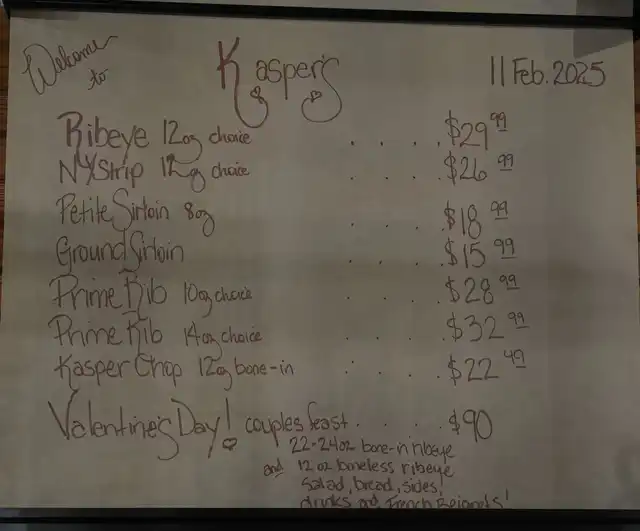 Welcome to Kasper's 11 Feb. 2025
Ribeye 12oz choice . . . . $29 99
NY Strip 12oz choice . . . . $26 99
Petite Sirloin 8oz . . . . $18 99
Ground Sirloin . . . . $15 99
Prime Rib 10oz choice . . . . $28 99
Prime Rib 14oz choice . . . . $32 99
Kasper Chop 12oz bone-in . . . . $22 49
Valentine's Day! couples feast . . . . $90
22-24oz bone-in ribeye
and 12 oz boneless ribeye
salad, bread, sides,
drinks and French Beignets!